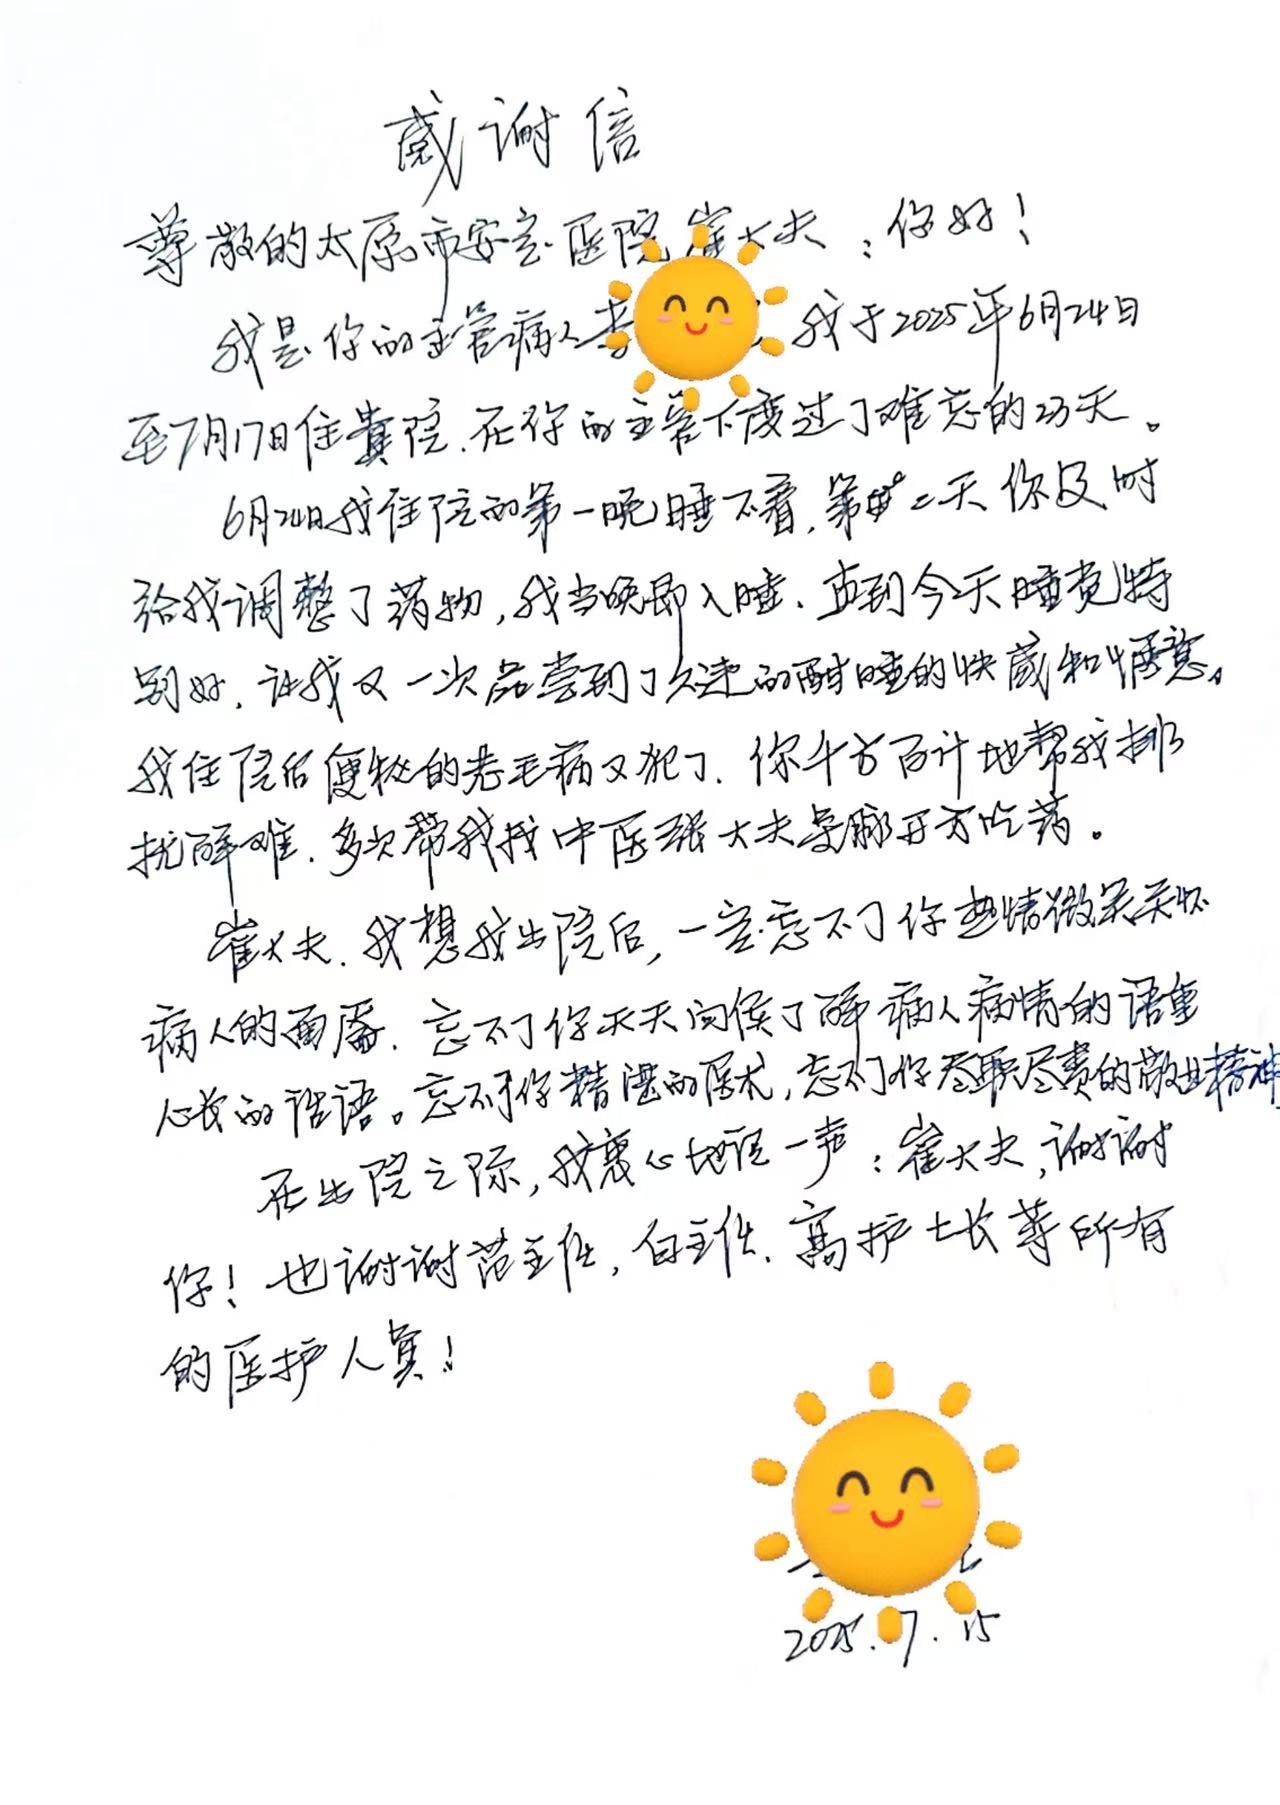 感谢信
尊敬的太原市安定医院崔大夫：你好！
我是你的主管病人李 我于2025年6月24日
至7月17日住贵院.在你的主管下度过了难忘的23天。
6月24日我住院的第一晚睡不着,第二天你及时
给我调整了药物,我当晚即入睡.直到今天睡觉特
别好.让我又一次品尝到了久违的酣睡的快感和惬意。
我住院后便秘的老毛病又犯了.你千方百计地帮我排
扰解难.多次帮我找中医张大夫号脉开方吃药。
崔大夫.我想我出院后,一定忘不了你热情微笑关怀
病人的面靥.忘不了你天天问候了解病人病情的语重
心长的话语。忘不了你精湛的医术,忘不了你尽职尽责的敬业精神
在出院之际,我衷心地说一声：崔大夫,谢谢
你！也谢谢范主任,白主任.高护士长等所有
的医护人员！
2025.7.15